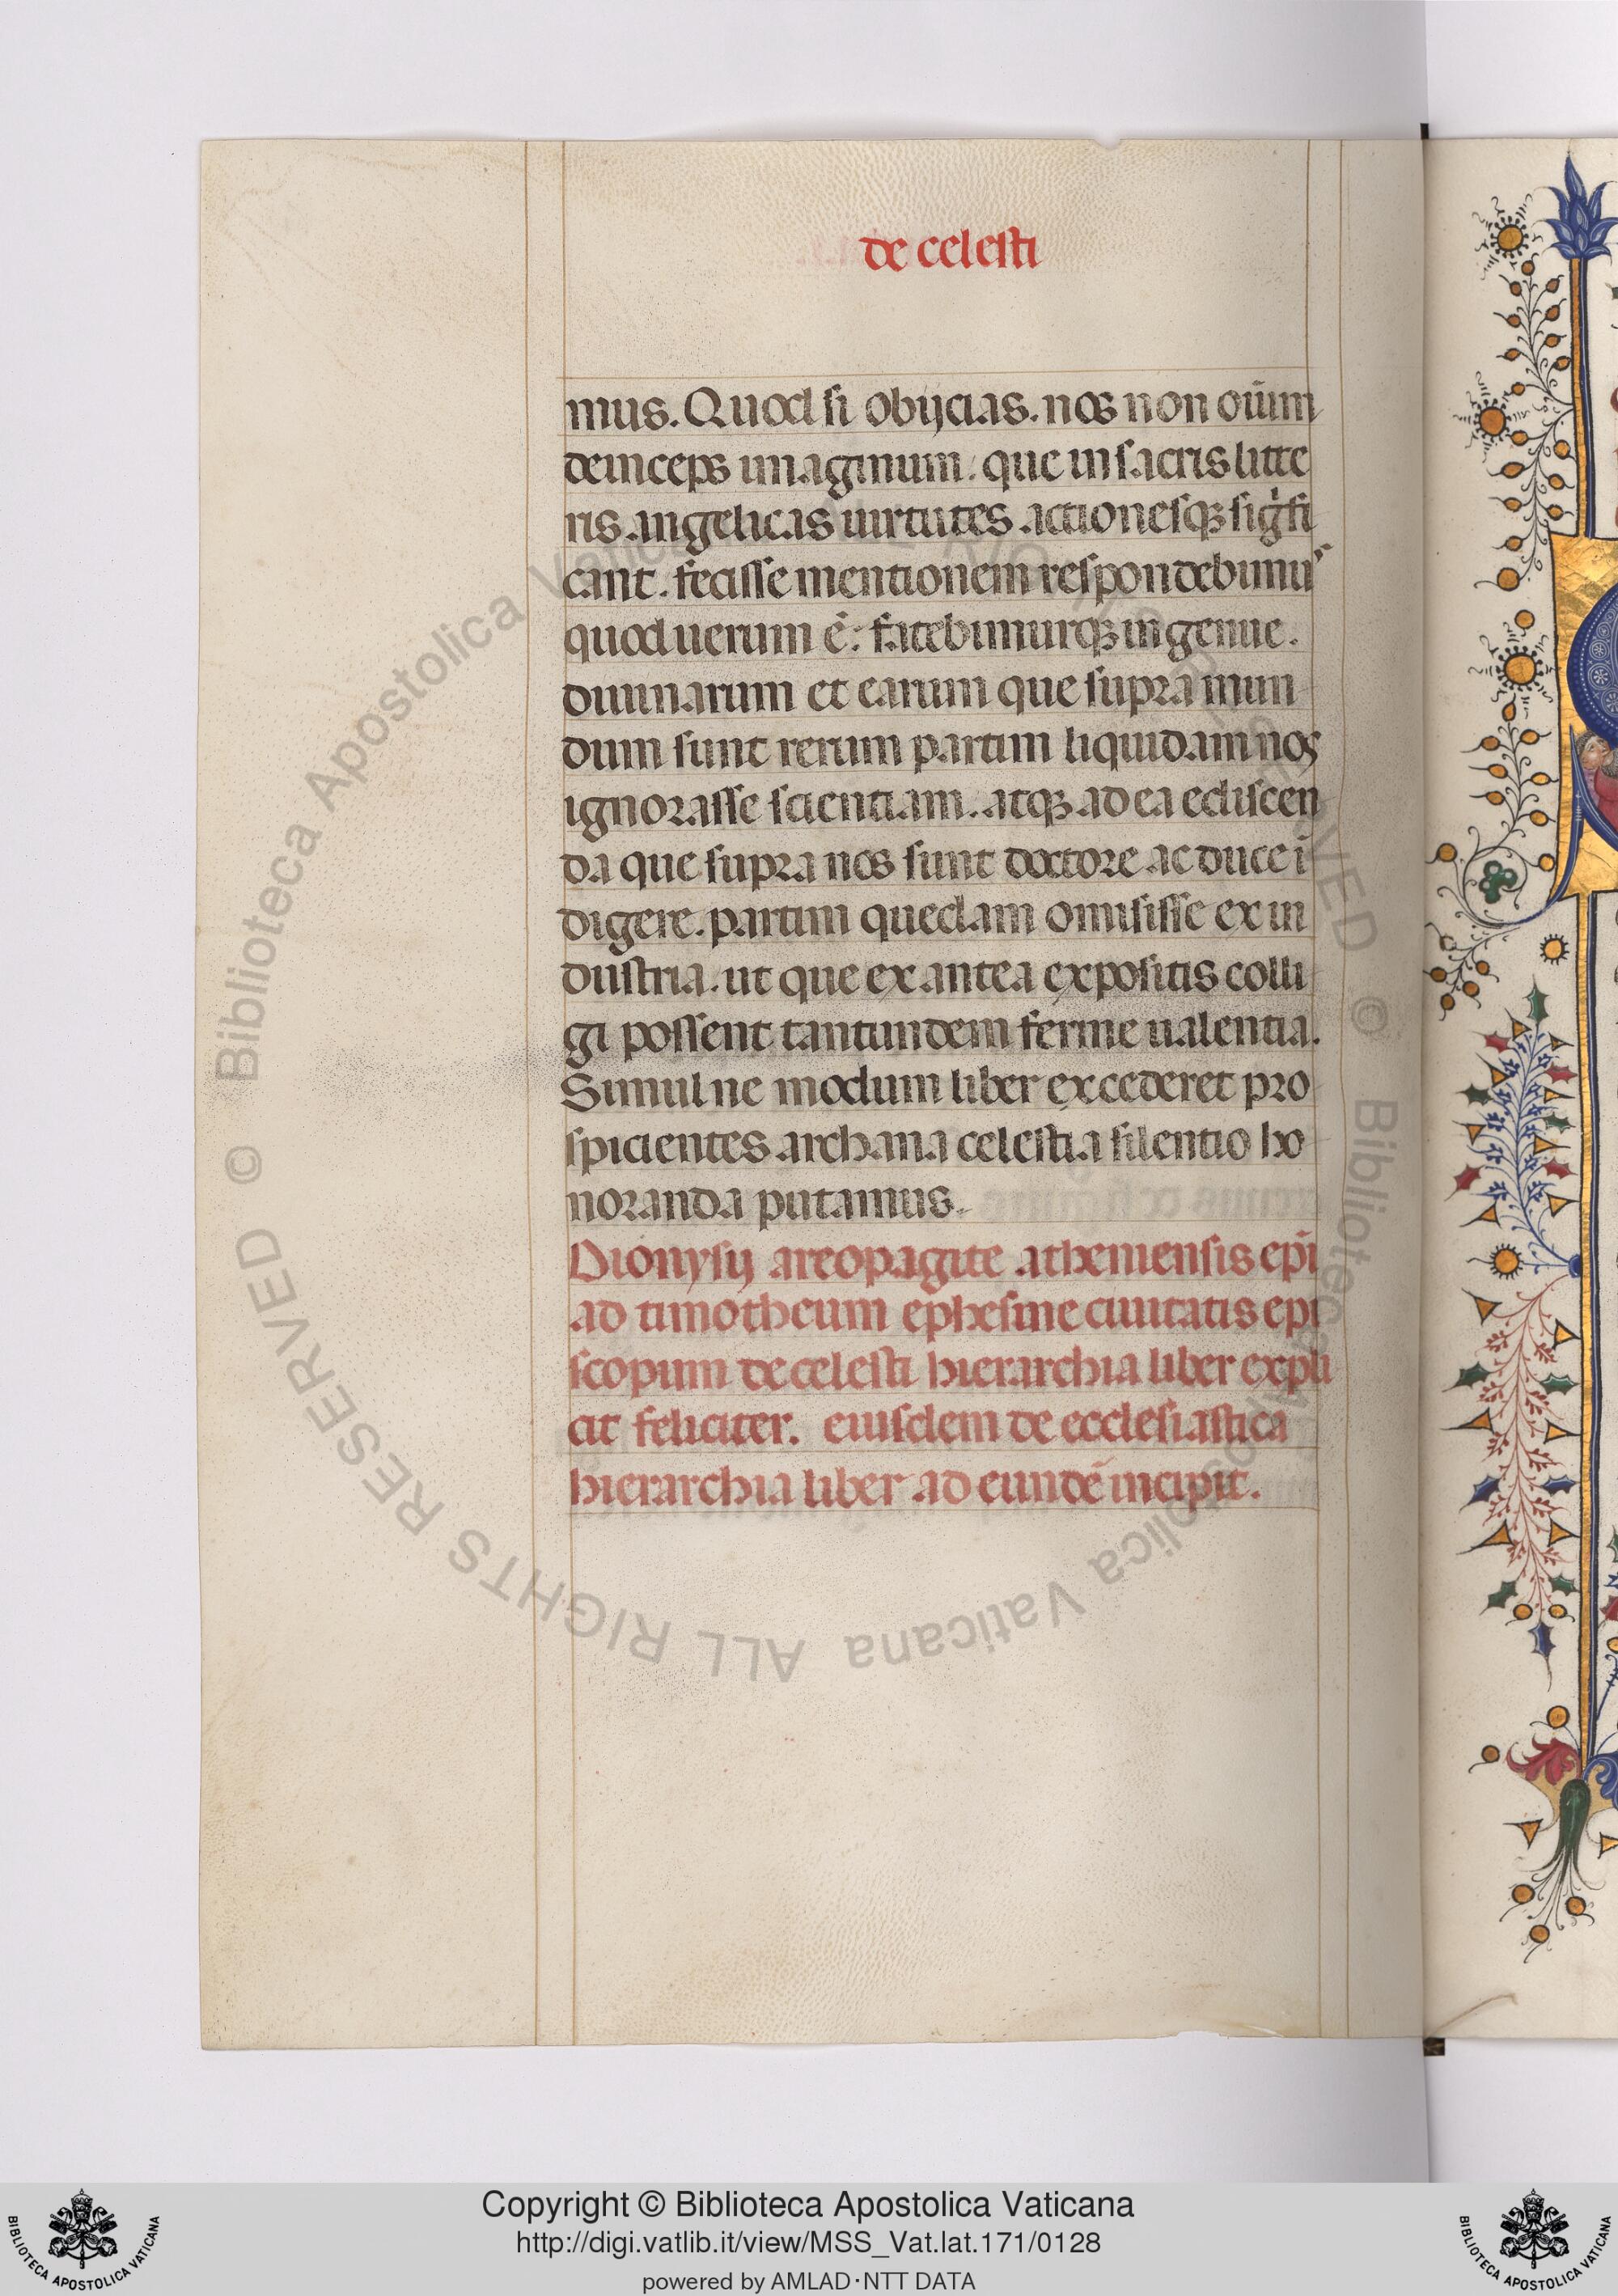 de celesti
mus. Quod si obijcias. nos non oīum
deinceps imaginum. que in sacris litte
ris angelicas uirtutes actionesqꝫ sigᷝfi
cant. fecisse mentionem respondebimuˢ
quod uerum ē: fatebimurqꝫ ingenue.
diuinarum et earum que supra mun
dum sunt rerum partim liquidam nos
ignorasse scientiam. atqꝫ ad ea ediscen
da que supra nos sunt doctore ac duce ī
digere. partim quedam omisisse ex in
dustria. ut que ex antea expositis colli
gi possent tantundem ferme ualentia.
Simul ne modum liber excederet pro
spicientes archana celestia silentio ho
noranda putamus.
Dionysij areopagite atheniensis epī
ad timotheum ephesine ciuitatis epi
scopum de celesti hierarchia liber expli
cit feliciter. eiusdem de ecclesiastica
hierarchia liber ad eundē incipit.
© Biblioteca Apostolica Vaticana ALL RIGHTS RESERVED
© Biblioteca Apostolica Vaticana ALL RIGHTS RESERVED
Copyright © Biblioteca Apostolica Vaticana
http://digi.vatlib.it/view/MSS_Vat.lat.171/0128
powered by AMLAD·NTT DATA
BIBLIOTECA APOSTOLICA VATICANA
BIBLIOTECA APOSTOLICA VATICANA